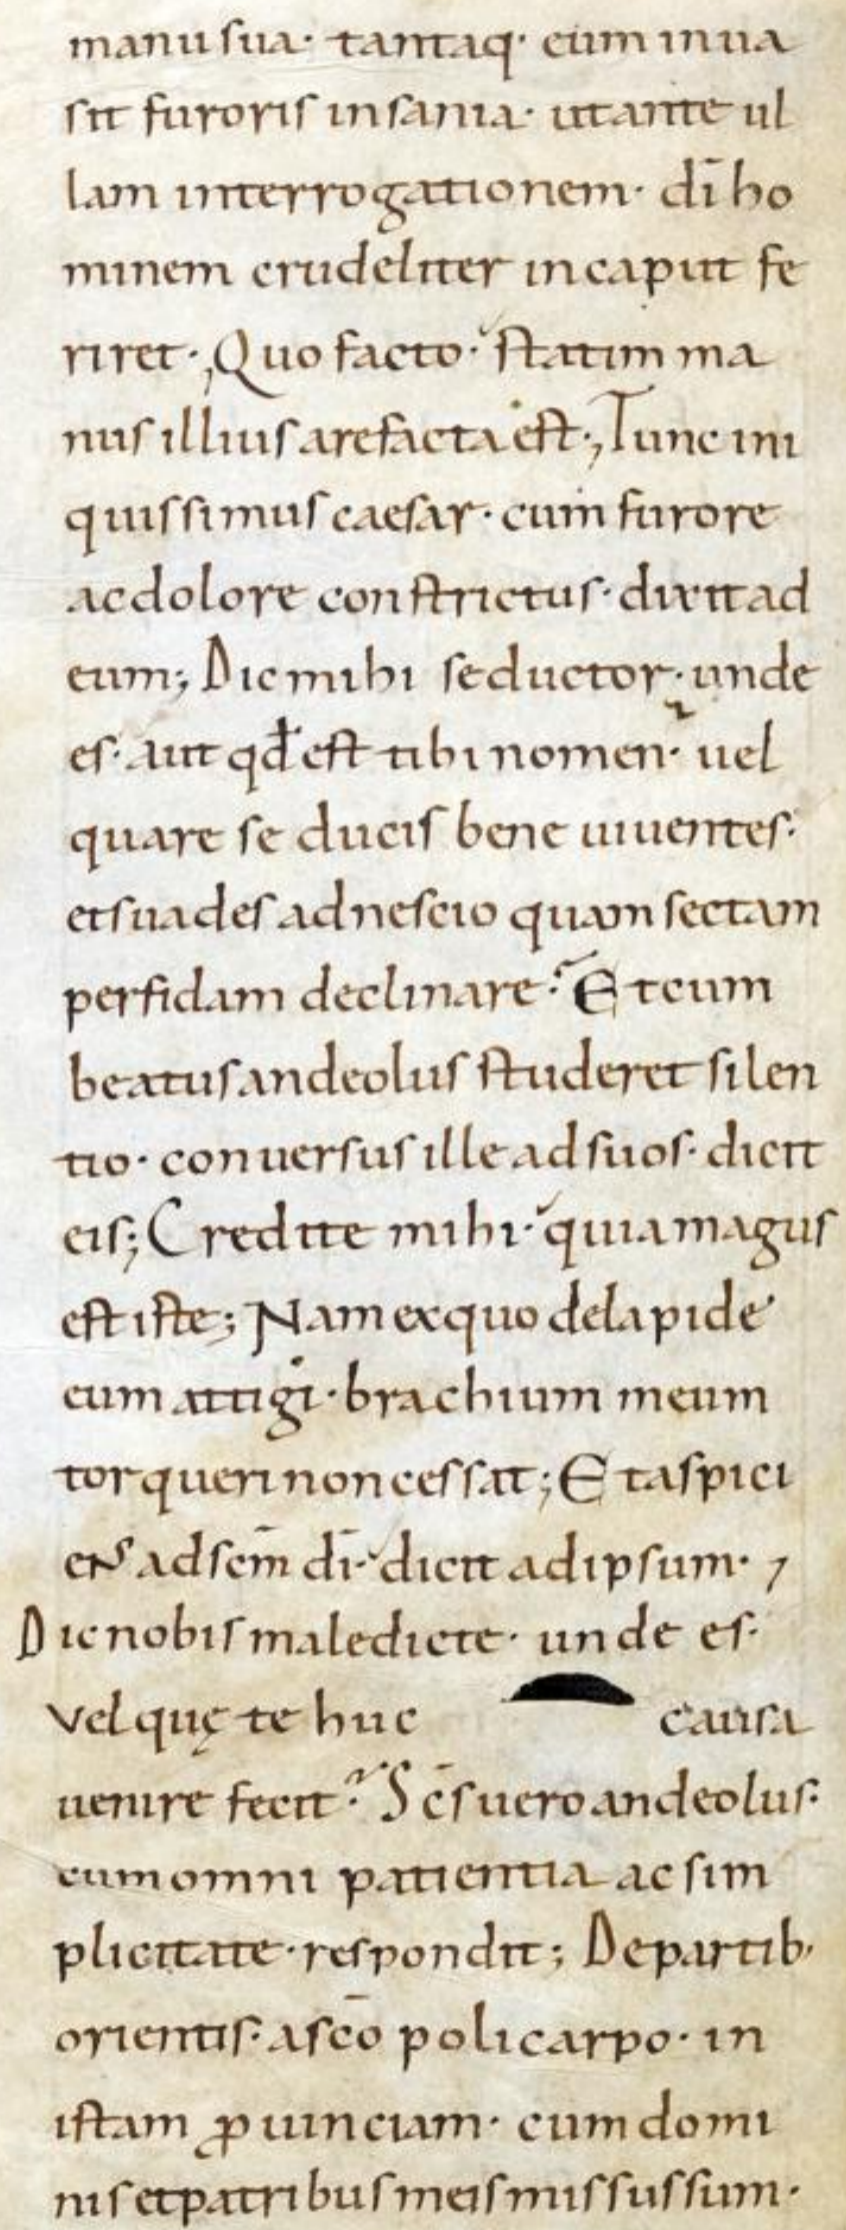 manu sua· tantaq· eum inua
sit furoris insania· ut ante ul
lam interrogationem· dī ho
minem crudeliter in caput fe
riret·, Quo facto· statim ma
nus illius arefacta est·, Tunc ini
quissimus caesar· cum furore
ac dolore constrictus· dixit ad
eum; Dic mihi seductor· unde
es· aut qđ est tibi nomen· uel
quare se ducis bene uiuentes·
et suades ad nescio quam sectam
perfidam declinare? Et cum
beatus andeolus studeret silen
tio· conuersus ille ad suos· dicit
eis; Credite mihi· quia magus
est iste; Nam ex quo de lapide
eum attigi· brachium meum
torqueri non cessat; Et aspici
ens ad scm̄ dī· dicit ad ipsum· ,
Dic nobis maledicte· unde es·
Vel quę te huc causa
uenire fecit? Sc̄s uero andeolus·
cum omni patientia ac sim
plicitate· respondit; De partib·
orientis· a sc̄o policarpo· in
istam ꝓuinciam· cum domi
nis et patribus meis missus sum·